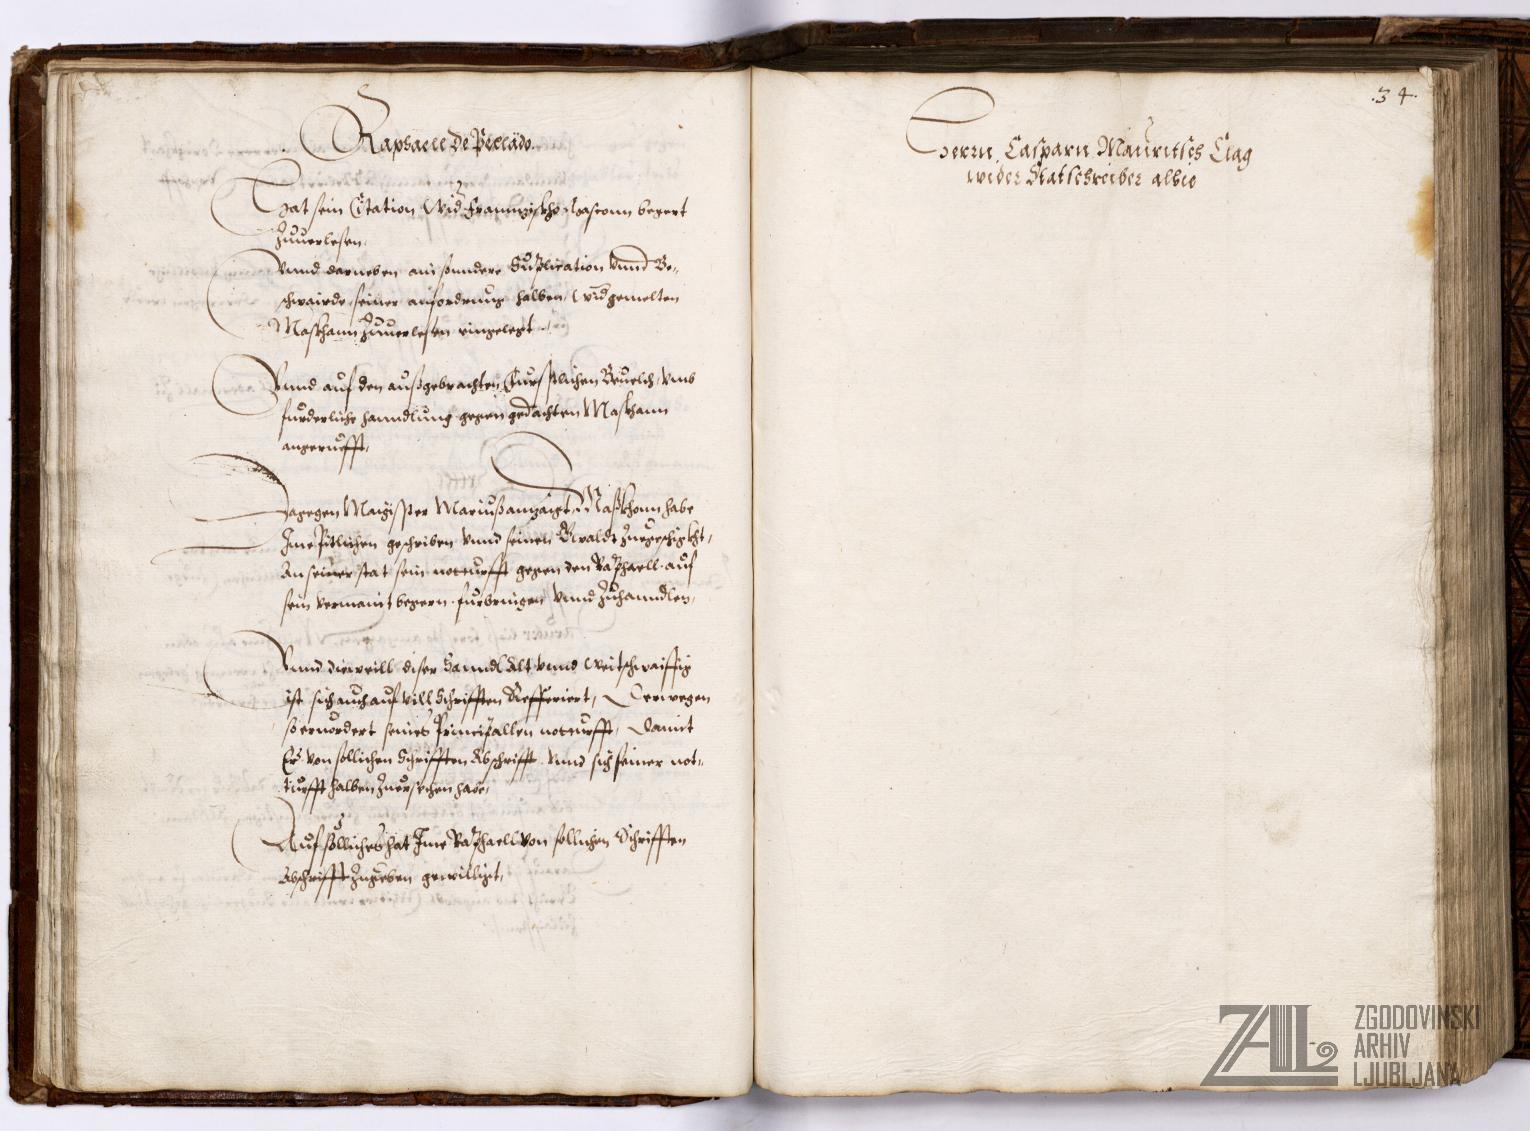 Raphaele De Pellado.
Hat sein Citation Wid Franntzisckho Maskonn begert
Zuuerlesen,
Vnnd darneben ain sundere Supplication vnnd Be-
schwärde, seiner anfordrung halben, wid gemelten
Maskhann Zuuerlesen eingelegt.
Vnnd auf den außgebrachten Fürstlichen Beuelch, vmb
furderliche hanndlung gegen gedachten Maskhann
angerufft,
Dagegen Magister Mariuß antzaigt, Maskhonn habe
Ime Pitlichen geschriben vnnd seinen Gwaldt Zuegeschigkht,
An seiner stat sein notturfft gegen den Raphaell, auf
sein vermaint begern, furbringen vnnd Zuhanndlen,
Vnnd dieweill diser Hanndl Alt vnnd Weitschwaiffig
ist, sich auch auf vill Schrifften Refferiert, Derwegen
so eruordert seines Principallen notturfft, Damit
Er von sollichen Schrifften Abschrifft vnnd sich seiner not-
turfft halben Zuersehen habe,
Auf sölliches hat Ime Raphaell von sollichen Schrifften
Abschrifft Zugeben gewilligt,
.34.
Herrn Casparn Mauritsch Clag
wider Statschreiber alhie
ZAL ZGODOVINSKI
ARHIV
LJUBLJANA